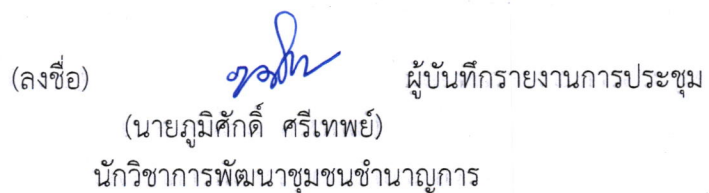 (ลงชื่อ) ผู้บันทึกรายงานการประชุม
(นายภูมิศักดิ์ ศรีเทพย์)
นักวิชาการพัฒนาชุมชนชำนาญการ